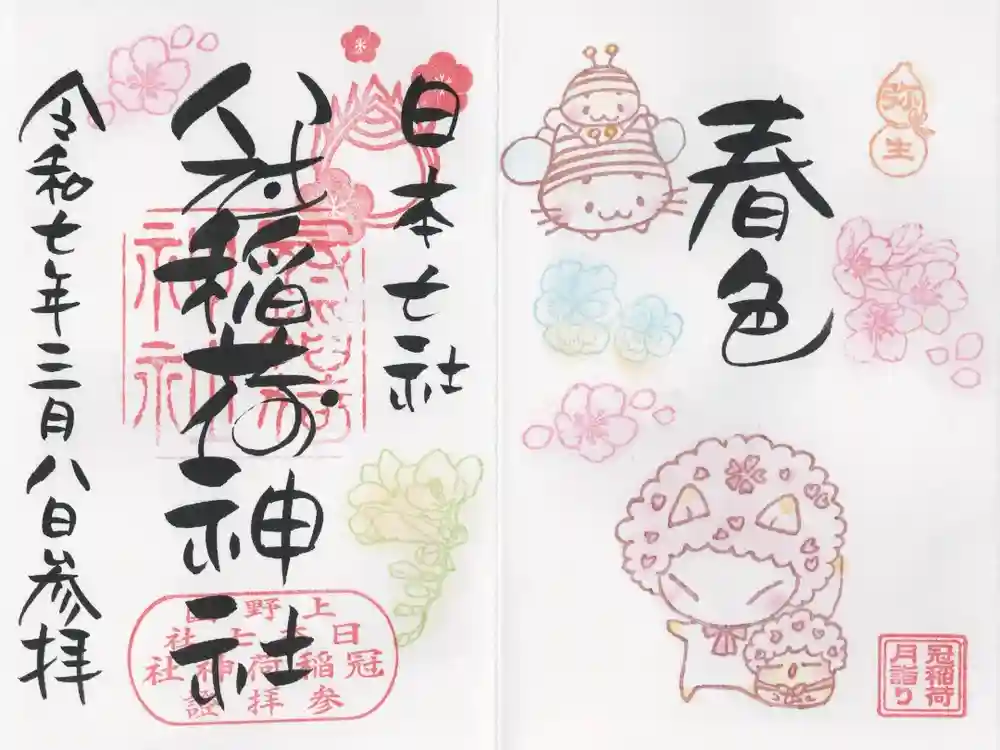 弥生
春色
冠稲荷
月詣り
日本七社
冠稲荷神社
令和七年三月八日参拝
上野国
日本七社
冠稲荷神社
参拝證